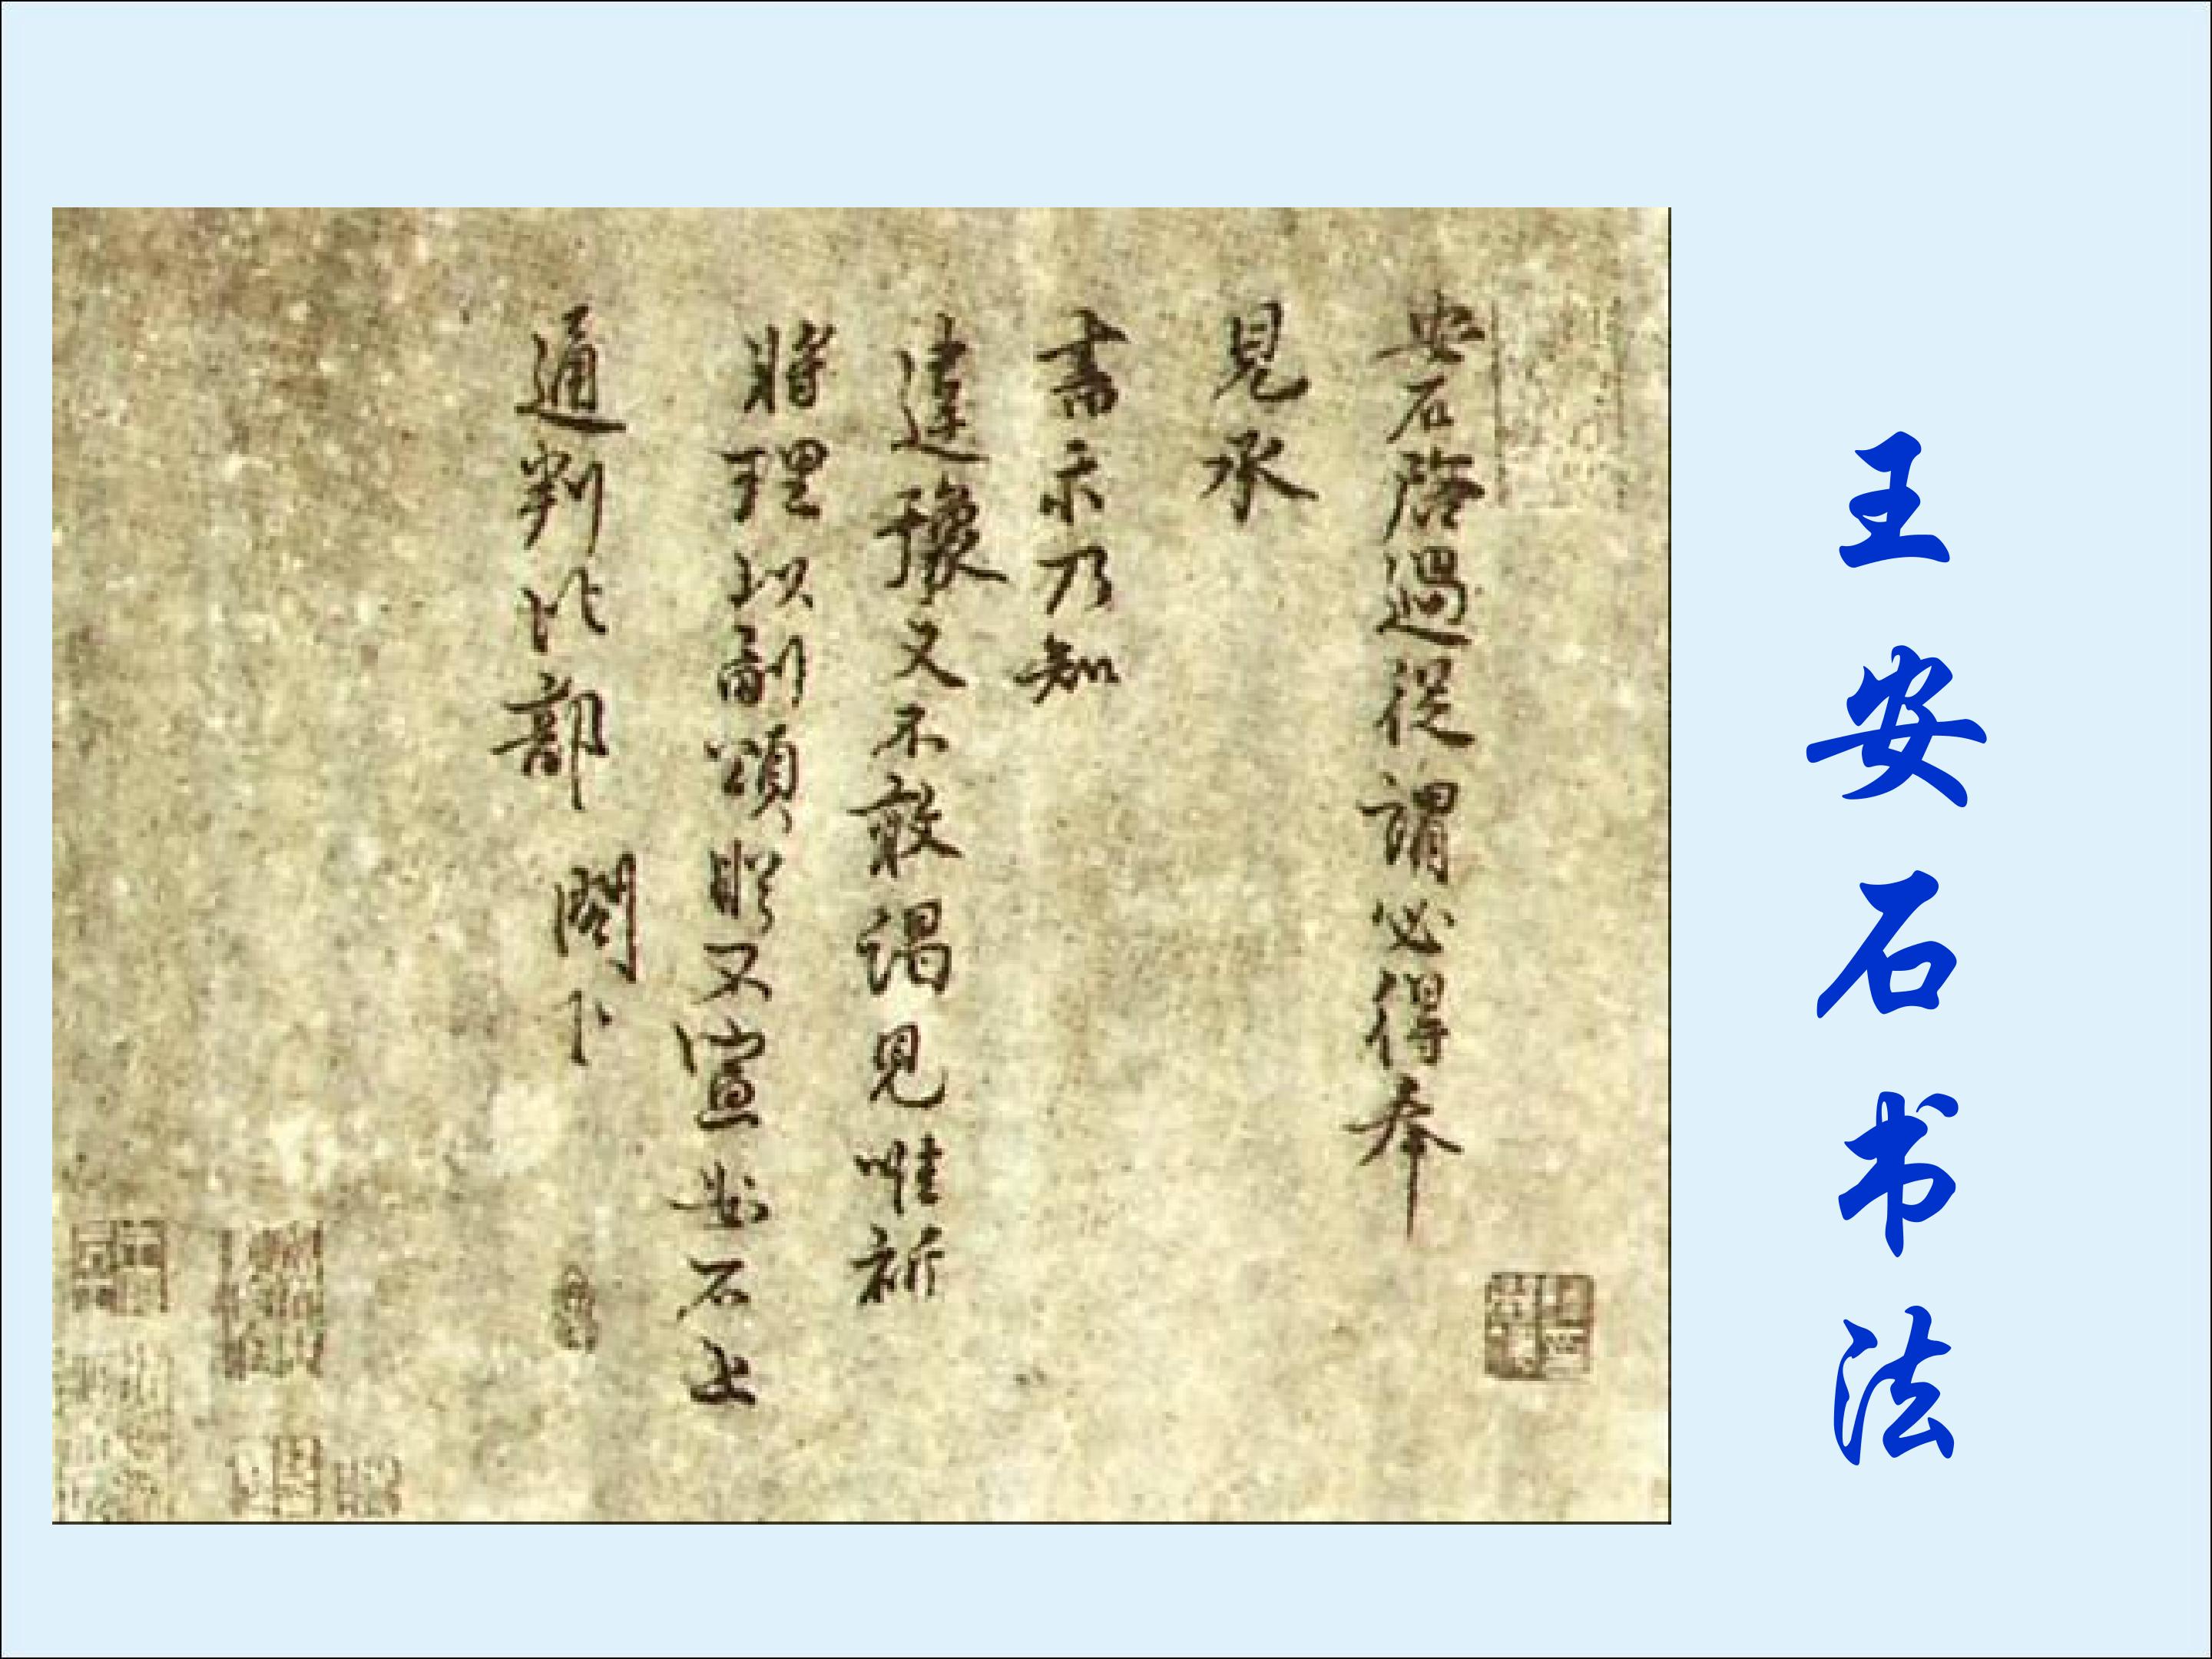 王安石书法
安石啓過從謂必得奉
見承
書示乃知
違豫又不敢謁見唯祈
將理以副頌眷不宣安石上
通判比部 閣下